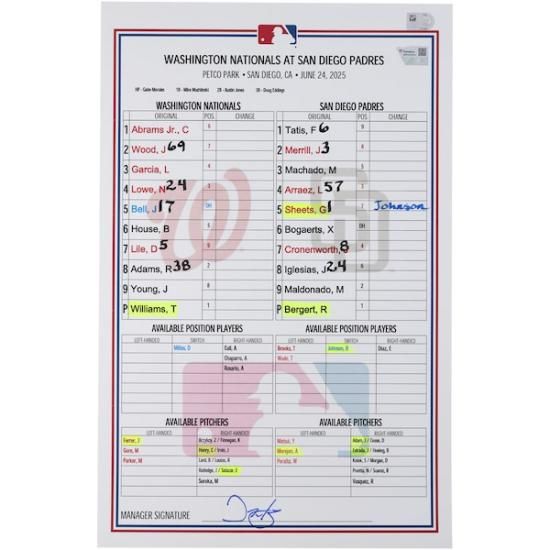 WASHINGTON NATIONALS AT SAN DIEGO PADRES
PETCO PARK • SAN DIEGO, CA • JUNE 24, 2025
HP - Gabe Morales 1B - Mike Muchlinski 2B - Austin Jones 3B - Doug Eddings
WASHINGTON NATIONALS
ORIGINAL POS. CHANGE
1 Abrams Jr., C 6
2 Wood, J 69 7
3 Garcia, L 4
4 Lowe, N 24 3
5 Bell, J 17 DH
6 House, B 5
7 Lile, D 5 9
8 Adams, R 38 2
9 Young, J 8
P Williams, T 1
SAN DIEGO PADRES
ORIGINAL POS. CHANGE
1 Tatis, F 6 9
2 Merrill, J 3 8
3 Machado, M 5
4 Arraez, L 57 3
5 Sheets, G 1 7 Johnson
6 Bogaerts, X DH
7 Cronenworth, J 8 4
8 Iglesias, J 24 6
9 Maldonado, M 2
P Bergert, R 1
AVAILABLE POSITION PLAYERS
LEFT-HANDED SWITCH RIGHT-HANDED
Millas, D Call, A
Chaparro, A
Rosario, A
AVAILABLE POSITION PLAYERS
LEFT-HANDED SWITCH RIGHT-HANDED
Brooks, T Johnson, B Díaz, E
Wade, T
AVAILABLE PITCHERS
LEFT-HANDED RIGHT-HANDED
Ferrer, J Brzykcy, Z / Finnegan, K
Gore, M Henry, C / Irvin, J
Parker, M Lord, B / Loutos, R
Rutledge, J / Salazar, E
Soroka, M
AVAILABLE PITCHERS
LEFT-HANDED RIGHT-HANDED
Matsui, Y Adam, J / Cease, D
Morejon, A Estrada, J
Peralta, W Kolek, S / Morgan, D
Pivetta, N / Suarez, R
Vasquez, R
MANAGER SIGNATURE